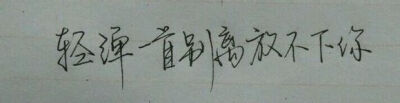 轻弹一首别离放不下你